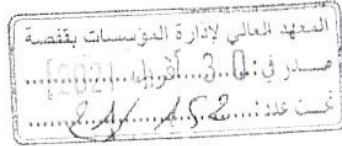 المعهد العالي لإدارة المؤسسات بقفصة
صدر في: 30 أفريل 2021
تحت عدد: